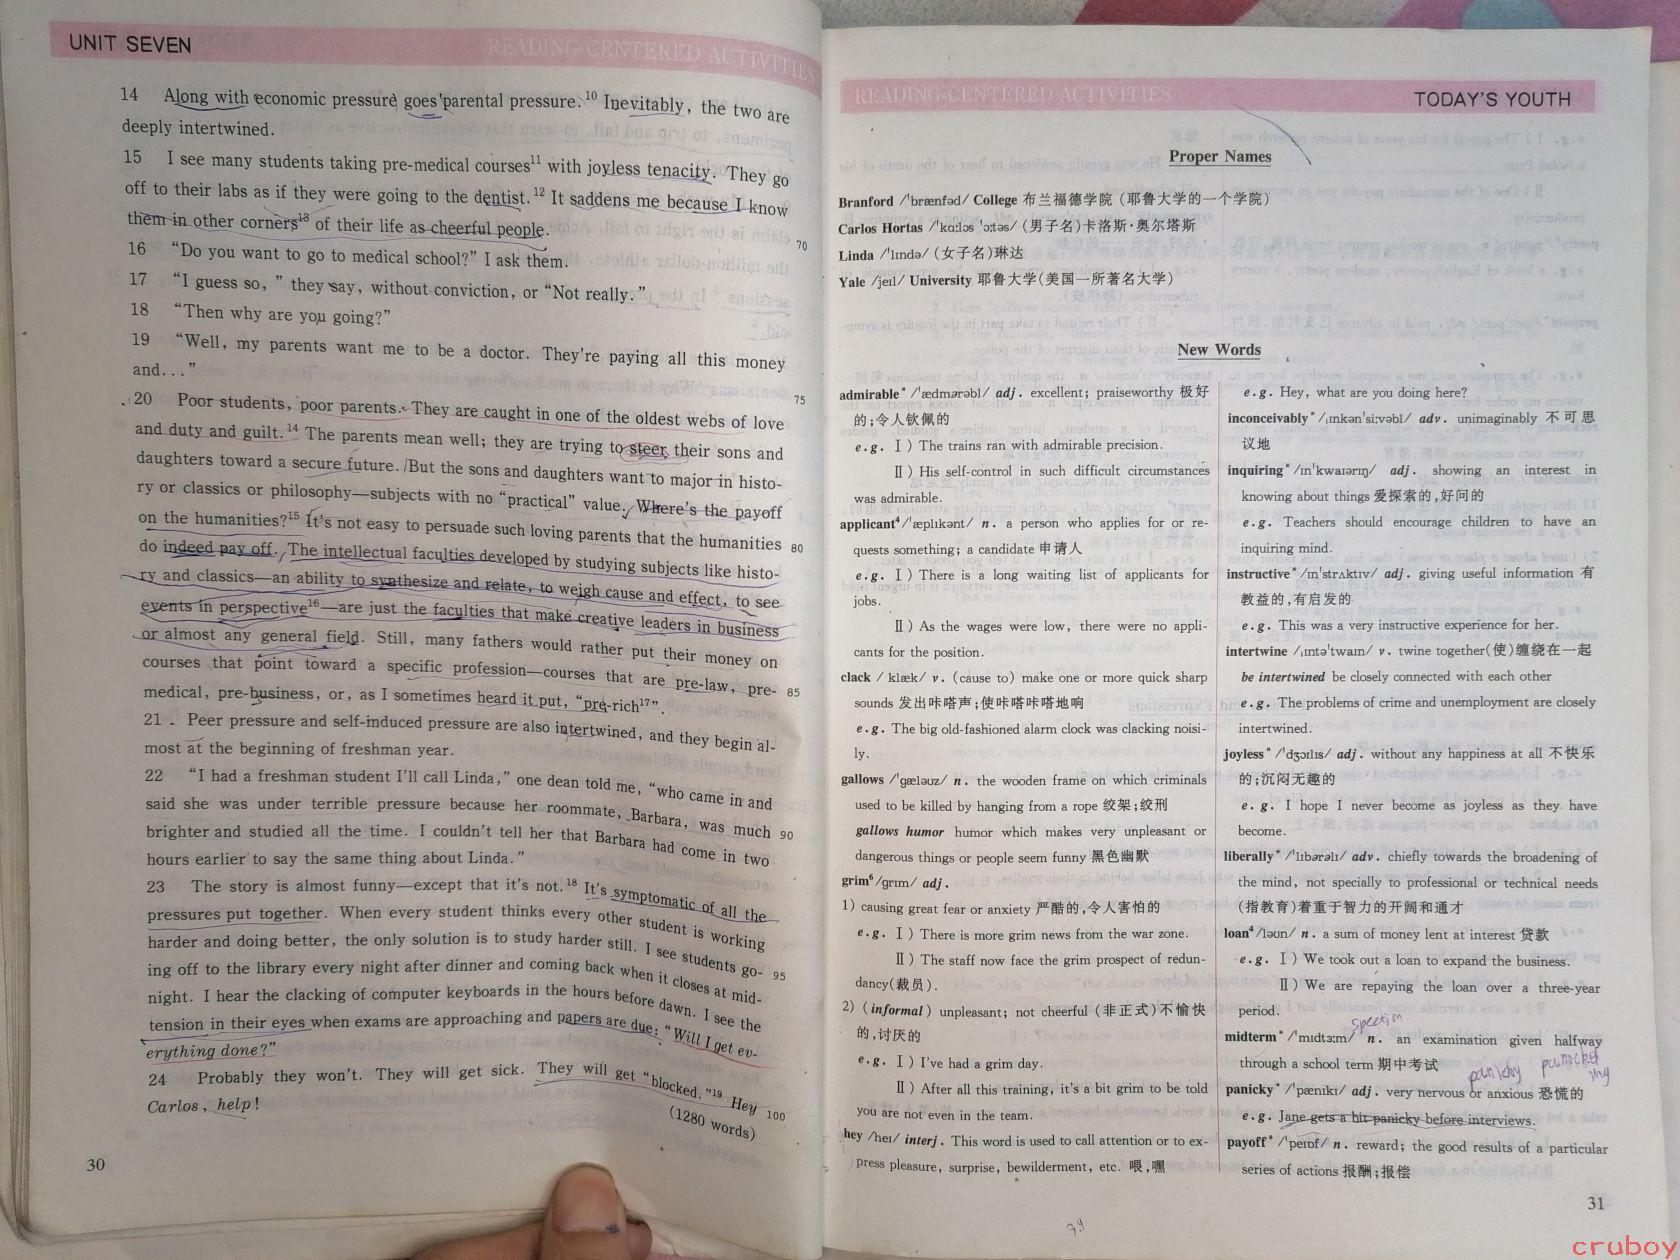 UNIT SEVEN
READING-CENTERED ACTIVITIES
14 Along with economic pressure goes parental pressure.¹⁰ Inevitably, the two are
deeply intertwined.
15 I see many students taking pre-medical courses¹¹ with joyless tenacity. They go
off to their labs as if they were going to the dentist.¹² It saddens me because I know
them in other corners¹³ of their life as cheerful people.
70
16 “Do you want to go to medical school?” I ask them.
17 “I guess so, ” they say, without conviction, or “Not really.”
18 “Then why are you going?”
19 “Well, my parents want me to be a doctor. They're paying all this money
and...”
75
20 Poor students, poor parents. They are caught in one of the oldest webs of love
and duty and guilt.¹⁴ The parents mean well; they are trying to steer their sons and
daughters toward a secure future. But the sons and daughters want to major in histo-
ry or classics or philosophy—subjects with no “practical” value. Where's the payoff
on the humanities?¹⁵ It's not easy to persuade such loving parents that the humanities 80
do indeed pay off. The intellectual faculties developed by studying subjects like histo-
ry and classics—an ability to synthesize and relate, to weigh cause and effect, to see
events in perspective¹⁶—are just the faculties that make creative leaders in business
or almost any general field. Still, many fathers would rather put their money on
courses that point toward a specific profession—courses that are pre-law, pre- 85
medical, pre-business, or, as I sometimes heard it put, “pre-rich¹⁷”.
21 Peer pressure and self-induced pressure are also intertwined, and they begin al-
most at the beginning of freshman year.
22 “I had a freshman student I'll call Linda,” one dean told me, “who came in and
said she was under terrible pressure because her roommate, Barbara, was much 90
brighter and studied all the time. I couldn't tell her that Barbara had come in two
hours earlier to say the same thing about Linda.”
23 The story is almost funny—except that it's not.¹⁸ It's symptomatic of all the
pressures put together. When every student thinks every other student is working
harder and doing better, the only solution is to study harder still. I see students go-
ing off to the library every night after dinner and coming back when it closes at mid- 95
night. I hear the clacking of computer keyboards in the hours before dawn. I see the
tension in their eyes when exams are approaching and papers are due: “Will I get ev-
erything done?”
24 Probably they won't. They will get sick. They will get “blocked.”¹⁹ Hey
Carlos, help! 100
(1280 words)
30
READING-CENTERED ACTIVITIES
TODAY'S YOUTH
Proper Names
Branford /ˈbrænfəd/ College 布兰福德学院 (耶鲁大学的一个学院)
Carlos Hortas /ˈkɑːlɔs ˈɔːtəs/ (男子名)卡洛斯·奥尔塔斯
Linda /ˈlɪndə/ (女子名)琳达
Yale /jeɪl/ University 耶鲁大学(美国一所著名大学)
New Words
admirable* /ˈædmərəbl/ adj. excellent; praiseworthy 极好
的;令人钦佩的
e.g. Ⅰ) The trains ran with admirable precision.
Ⅱ) His self-control in such difficult circumstances
was admirable.
applicant⁴ /ˈæplɪkənt/ n. a person who applies for or re-
quests something; a candidate 申请人
e.g. Ⅰ) There is a long waiting list of applicants for
jobs.
Ⅱ) As the wages were low, there were no appli-
cants for the position.
clack / klæk/ v. (cause to) make one or more quick sharp
sounds 发出咔嗒声;使咔嗒咔嗒地响
e.g. The big old-fashioned alarm clock was clacking noisi-
ly.
gallows /ˈɡæləʊz/ n. the wooden frame on which criminals
used to be killed by hanging from a rope 绞架;绞刑
gallows humor humor which makes very unpleasant or
dangerous things or people seem funny 黑色幽默
grim⁶ /ɡrɪm/ adj.
1) causing great fear or anxiety 严酷的,令人害怕的
e.g. Ⅰ) There is more grim news from the war zone.
Ⅱ) The staff now face the grim prospect of redun-
dancy(裁员).
2) (informal) unpleasant; not cheerful (非正式)不愉快
的,讨厌的
e.g. Ⅰ) I've had a grim day.
Ⅱ) After all this training, it's a bit grim to be told
you are not even in the team.
hey /heɪ/ interj. This word is used to call attention or to ex-
press pleasure, surprise, bewilderment, etc. 喂,嘿
e.g. Hey, what are you doing here?
inconceivably* /ˌɪnkənˈsiːvəbl/ adv. unimaginably 不可思
议地
inquiring* /ɪnˈkwaɪərɪŋ/ adj. showing an interest in
knowing about things 爱探索的,好问的
e.g. Teachers should encourage children to have an
inquiring mind.
instructive* /ɪnˈstrʌktɪv/ adj. giving useful information 有
教益的,有启发的
e.g. This was a very instructive experience for her.
intertwine /ˌɪntəˈtwaɪn/ v. twine together(使)缠绕在一起
be intertwined be closely connected with each other
e.g. The problems of crime and unemployment are closely
intertwined.
joyless* /ˈdʒɔɪlɪs/ adj. without any happiness at all 不快乐
的;沉闷无趣的
e.g. I hope I never become as joyless as they have
become.
liberally* /ˈlɪbərəlɪ/ adv. chiefly towards the broadening of
the mind, not specially to professional or technical needs
(指教育)着重于智力的开阔和通才
loan⁴ /ləʊn/ n. a sum of money lent at interest 贷款
e.g. Ⅰ) We took out a loan to expand the business.
Ⅱ) We are repaying the loan over a three-year
period.
midterm* /ˈmɪdtɜːm/ n. an examination given halfway
through a school term 期中考试
panicky* /ˈpænɪkɪ/ adj. very nervous or anxious 恐慌的
e.g. Jane gets a bit panicky before interviews.
payoff* /ˈpeɪɒf/ n. reward; the good results of a particular
series of actions 报酬;报偿
31
cruboy